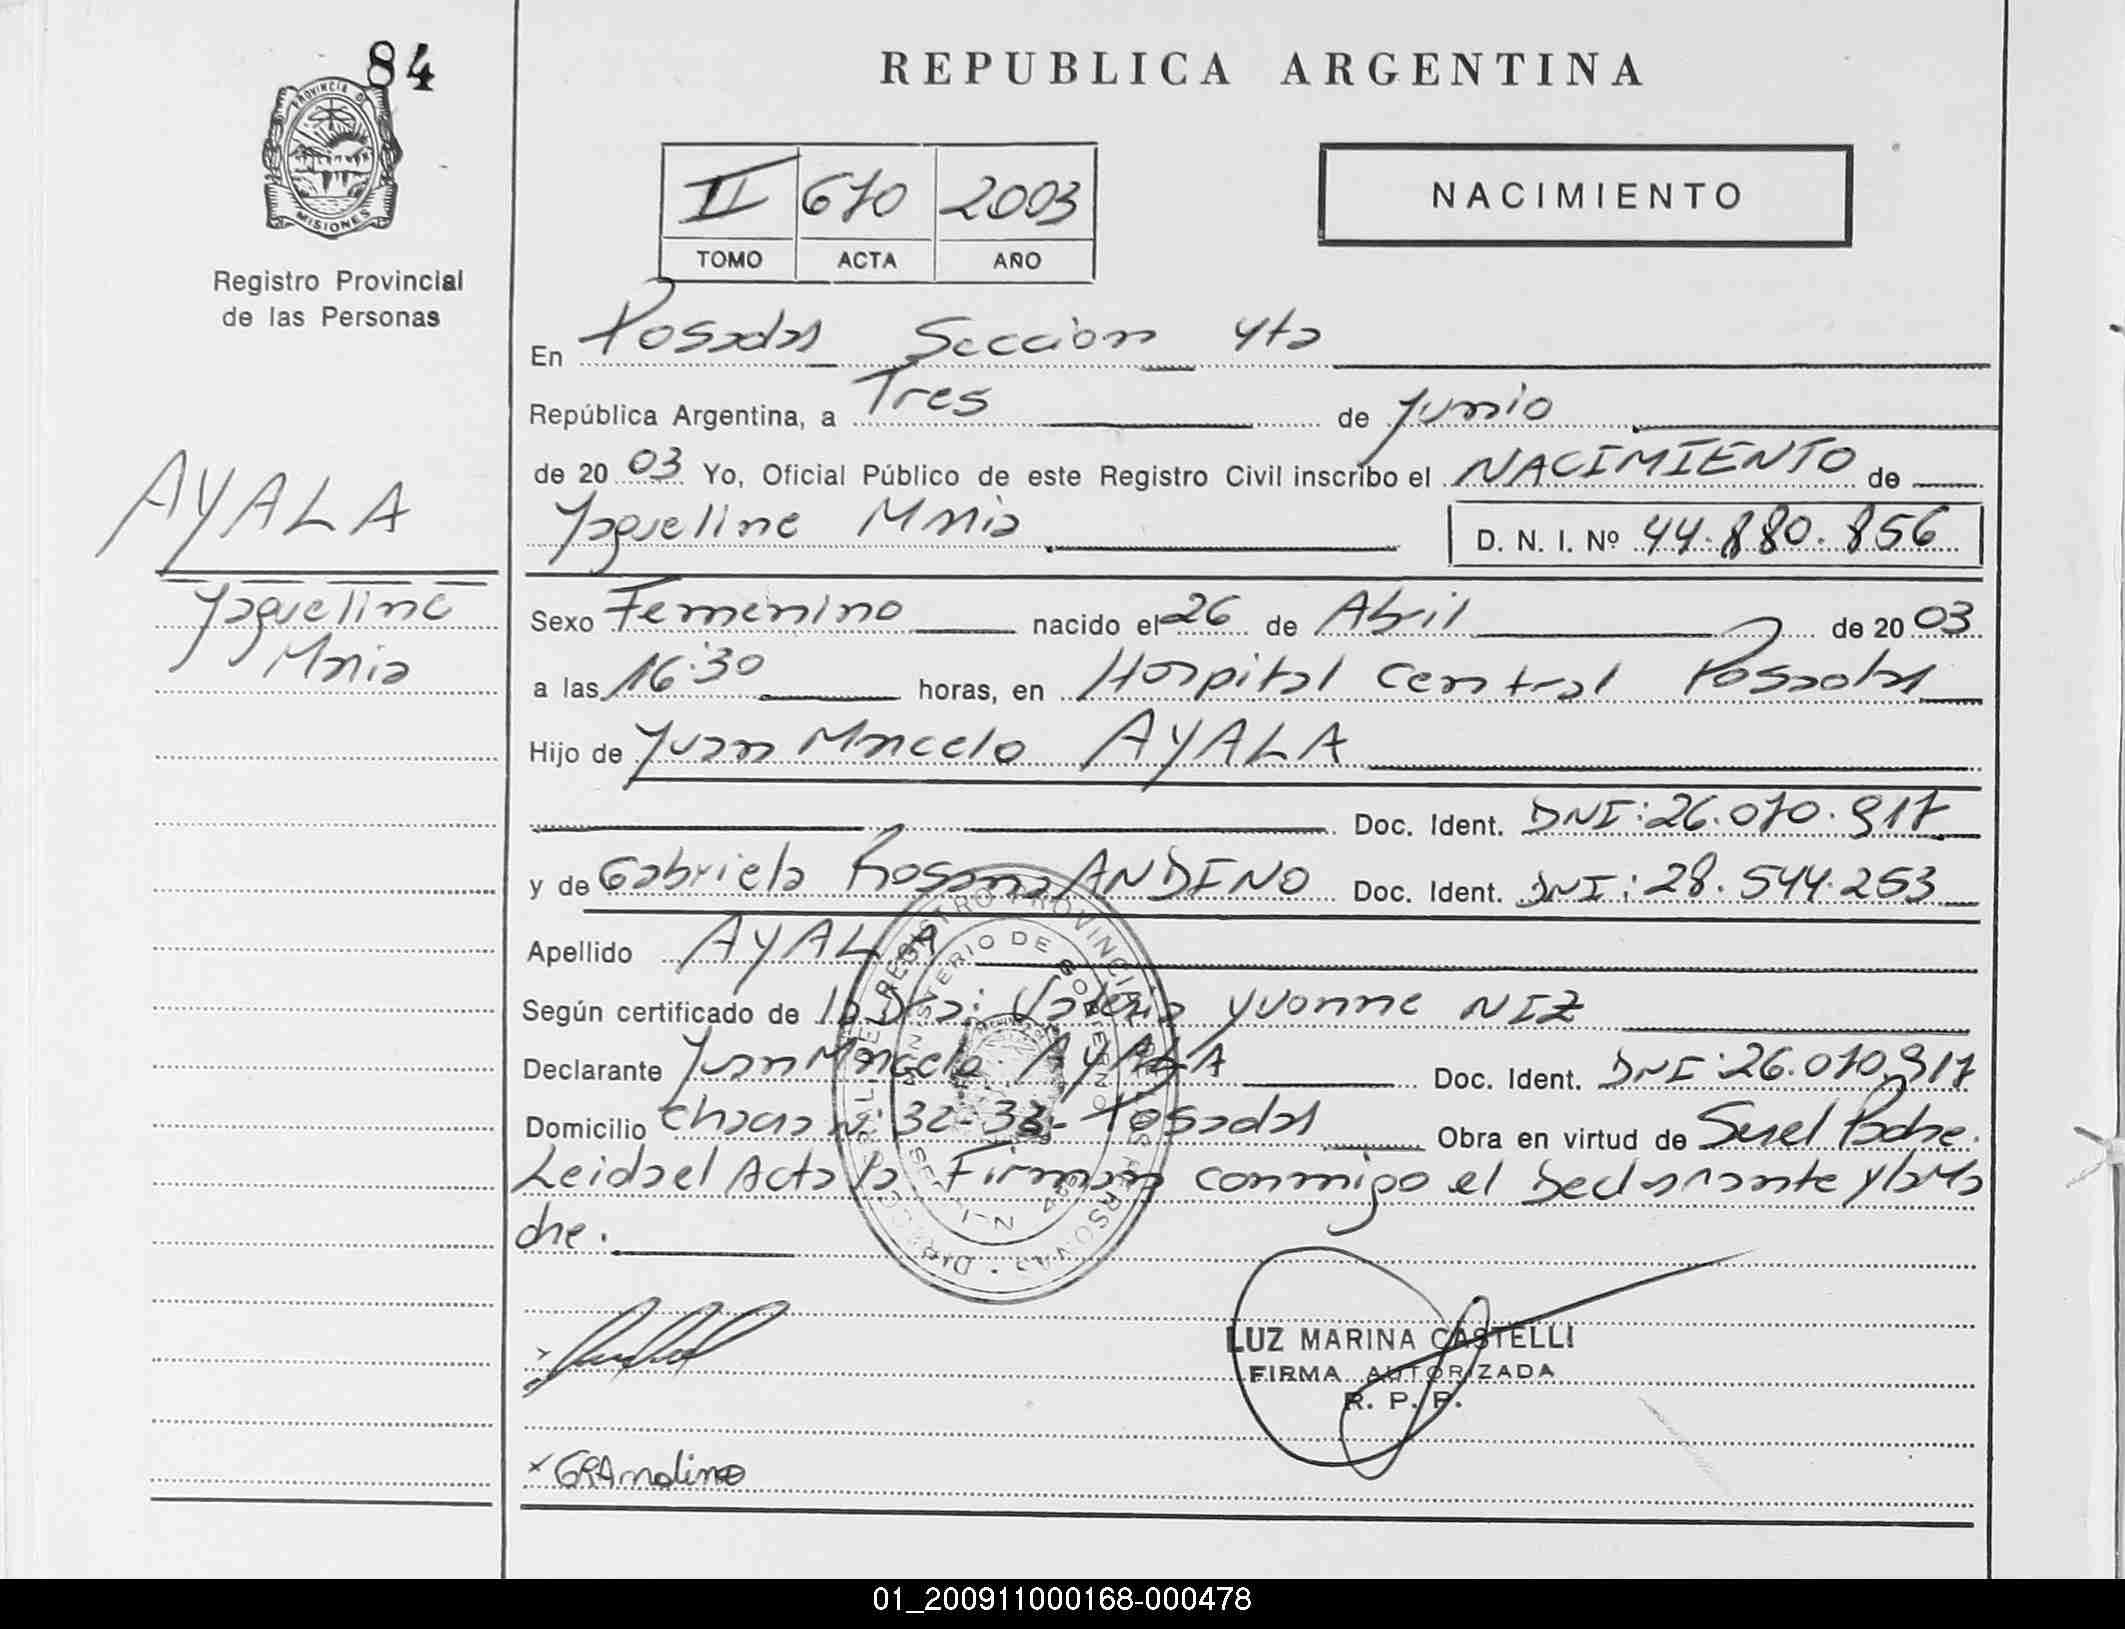 84
PROVINCIA DE
MISIONES
Registro Provincial
de las Personas
AYALA
Yaqueline
Maria
REPUBLICA ARGENTINA
II 670 2003
TOMO ACTA AÑO
NACIMIENTO
En Posadas Seccion 4ta
República Argentina, a Tres de Junio
de 20 03 Yo, Oficial Público de este Registro Civil inscribo el NACIMIENTO de
Yaqueline Maria D. N. I. Nº 44.880.856
Sexo Femenino nacido el 26 de Abril de 20 03
a las 16:30 horas, en Hospital Central Posadas
Hijo de Juan Marcelo AYALA
Doc. Ident. DNI: 26.070.917
y de Gabriela Rosana ANDINO Doc. Ident. DNI: 28.544.253
Apellido AYALA
Según certificado de la Dra: Valeria Yvonne NIZ
Declarante Juan Marcelo AYALA Doc. Ident. DNI: 26.070.917
Domicilio Chacra N. 32-33- Posadas Obra en virtud de Ser el Padre.
Leida el Acta la Firman conmigo el Declarante y la Ma
dre.
LUZ MARINA CASTELLI
FIRMA AUTORIZADA
R. P. P.
01_200911000168-000478